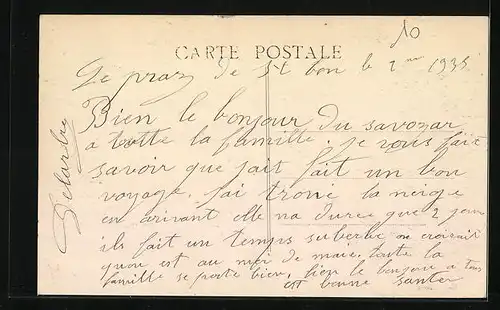 10
CARTE POSTALE
Le praz de St bon le 2 1935
Bien le bonjour du savoyar
a toutte la famille. je vous fait
savoir que jait fait un bon
voyage. jai trouvé la neige
en arivant elle na durée que 2 jour
ils fait un temps suberbe on croirait
quon est au moi de mai. toute la
famille se porte bien. bien le bonjour a tous
est bonne santer
Delardre